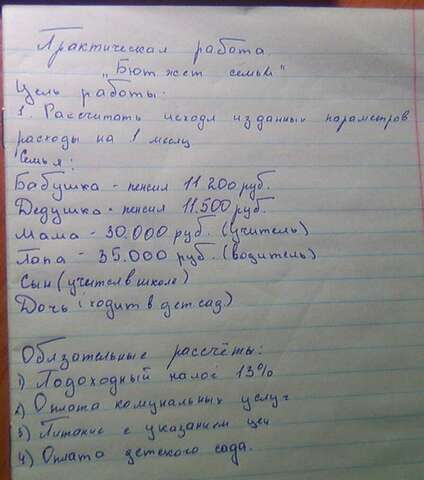 Практическая работа
"Бютжет семьи"
Цель работы:
1. Рассчитать исходя из данных параметров
расходы на 1 месяц
Семья:
Бабушка - пенсия 11 200 руб.
Дедушка - пенсия 11.500 руб.
Мама - 30.000 руб. (учитель)
Папа - 35.000 руб. (водитель)
Сын (учится в школе)
Дочь (ходит в дет. сад)
Обязательные рассчёты:
1) Подоходный налог 13%
2) Оплата комунальных услуг
3) Питание с указанием цен
4) Оплата детского сада.